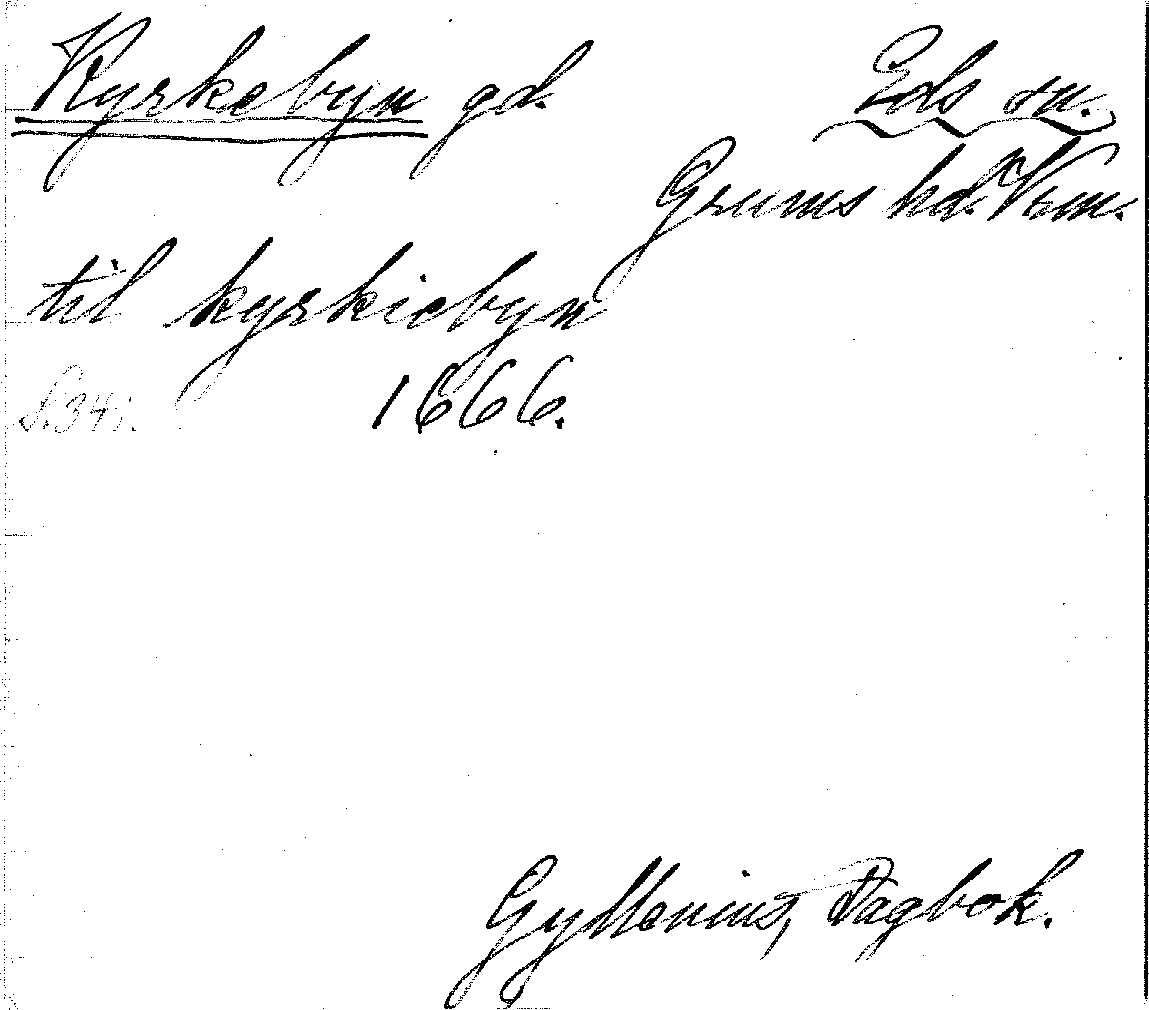 Kyrkebyn gd. Eds sn.
Grums hd. Vrm.
til kyrkiebyn
S. 341. 1666.
Gyllenius, Dagbok.